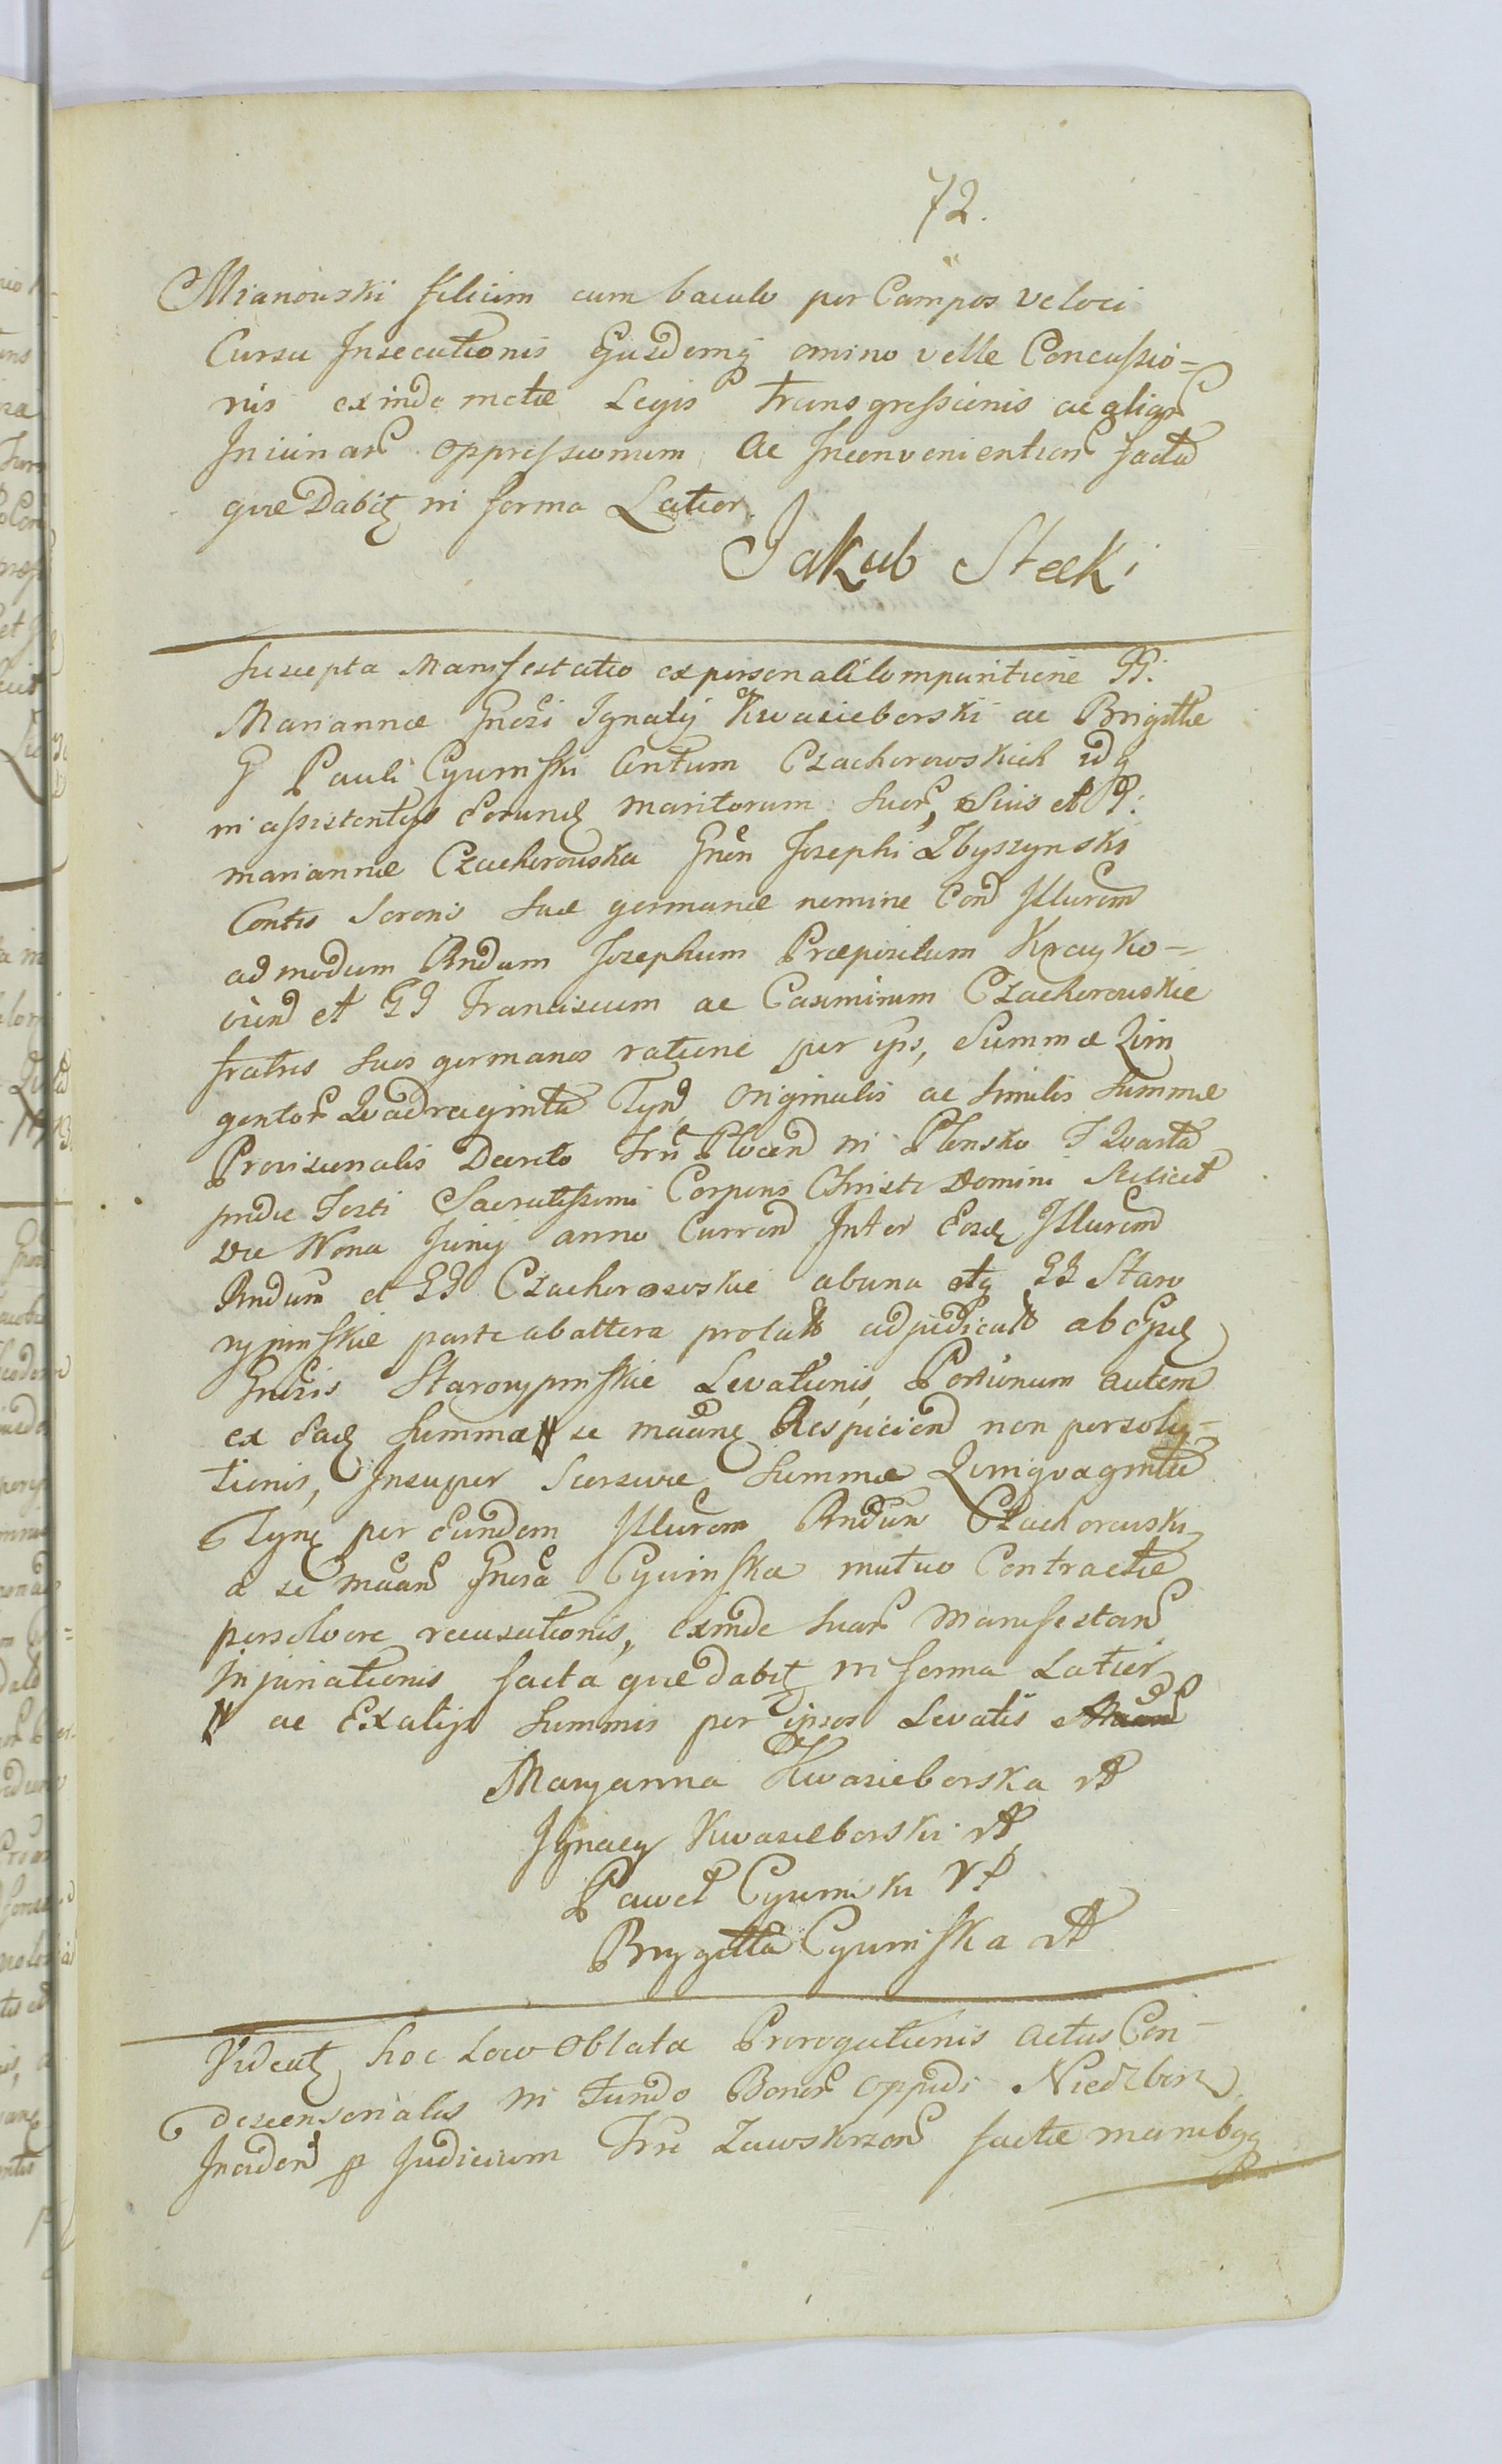 72.
Mianouski filium cum baculo per Campos veloci
Cursu Insecutionis Ejusdemq omino velle Concussio=
nis exinde metæ Legis transgressionis ac aliar
Iniuriar oppressionum ac Inconvenientior facta
quæ Dabitz in forma Latior.
Jakub Stecki
Suscepta Manifestatio ex personali Comparitione GG:
Mariannæ Gnosi Ignatij Kwasieborski ac Brigittæ
G Pauli Cywinski Contum Czachorowskich idq
in assistentijs Eorundz maritorum suor, Suis et G:
mariannæ Czachorowska Gnen Josephi Zbyszynski
Contis Sororis suæ germanæ nomine Cond Illurem
admodum Rndum Josephum Præpositum
et GG Franciscum ac Casimirum Czachorowskie
fratres suos germanos ratione per ips, Summæ Qvin
gentor Qvadraginta Tynf originalis ac similis summæ
Provisionalis Decreto Trri Plocen in Plonsko F Qvarta
pridie Festi Sacratissimi Corporis Christi Domini Scilicet
die Nona Junij anno Curren Inter Eosdz Illurem
Rndum et GG Czachorowskie abuna atq GG Staro
rypinskie parte abaltera prolatt adjudicatt ab
Gnosis Starorypinskie Levationis, Portionum autem
ex Eadz Summa # se maanz Respicien non persolu=
tionis, Insuper Seorsivæ Summæ Qvinqvaginta
Tynf per Eundem Illurem Rndum Czachorowski
a se maan Gnosa Cywinska mutuo Contractæ
persolvere recusationis, exinde suar manifestan
Injuriationis facta quæ dabitz in forma Latior
# ac Ex alijs Summis per ipsos Levatis
Maryanna Kwasieborska
Ignacy Kwasieborski
Paweł Cywinski
Brygitta Cywinska
Videatz hoc Loco Oblata Prorogationis actus Con-
descensorialis in Fundo Bonor oppidi Niedzborz
Inciden p Judicium Trre Zawskrzen factæ manibqq